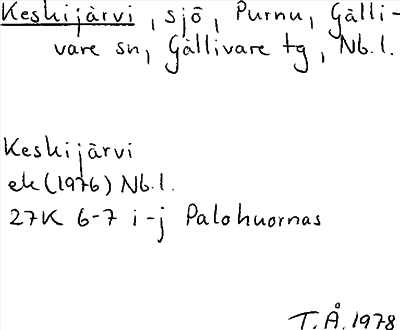 Keskijärvi, sjö, Purnu, Gälli-
vare sn, Gällivare tg, Nb.l.
Keskijärvi
ek (1976) Nb.l.
27K 6-7 i-j Palohuornas
T.Å. 1978